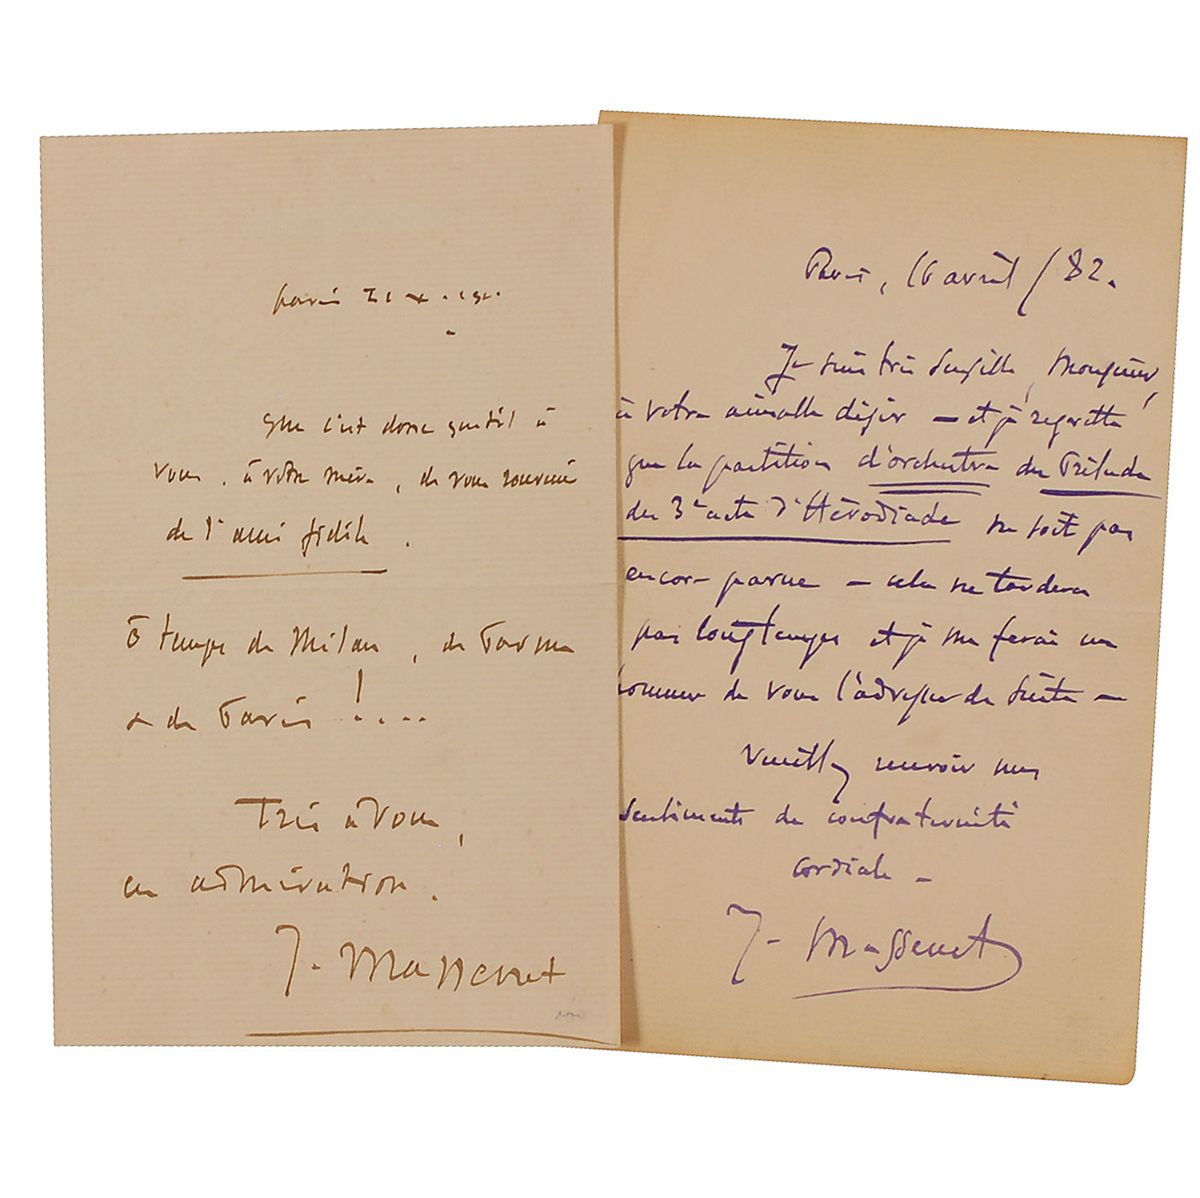 paris
Que c'est donc gentil à
vous, à votre mère, de vous souvenir
de l'ami fidèle.
Ô temps de Milan, de Parme
& de Paris !....
Très à vous,
en admiration.
J. Massenet
Paris, 16 avril /82.
Je suis très sensible, Monsieur,
à votre aimable désir — et je regrette
que la partition d'orchestre du Prélude
du 3e acte d'Hérodiade ne soit pas
encore parue — cela ne tardera
pas longtemps et je me ferai un
honneur de vous l'adresser de suite —
Veuillez recevoir mes
sentiments de confraternité
cordiale —
J. Massenet